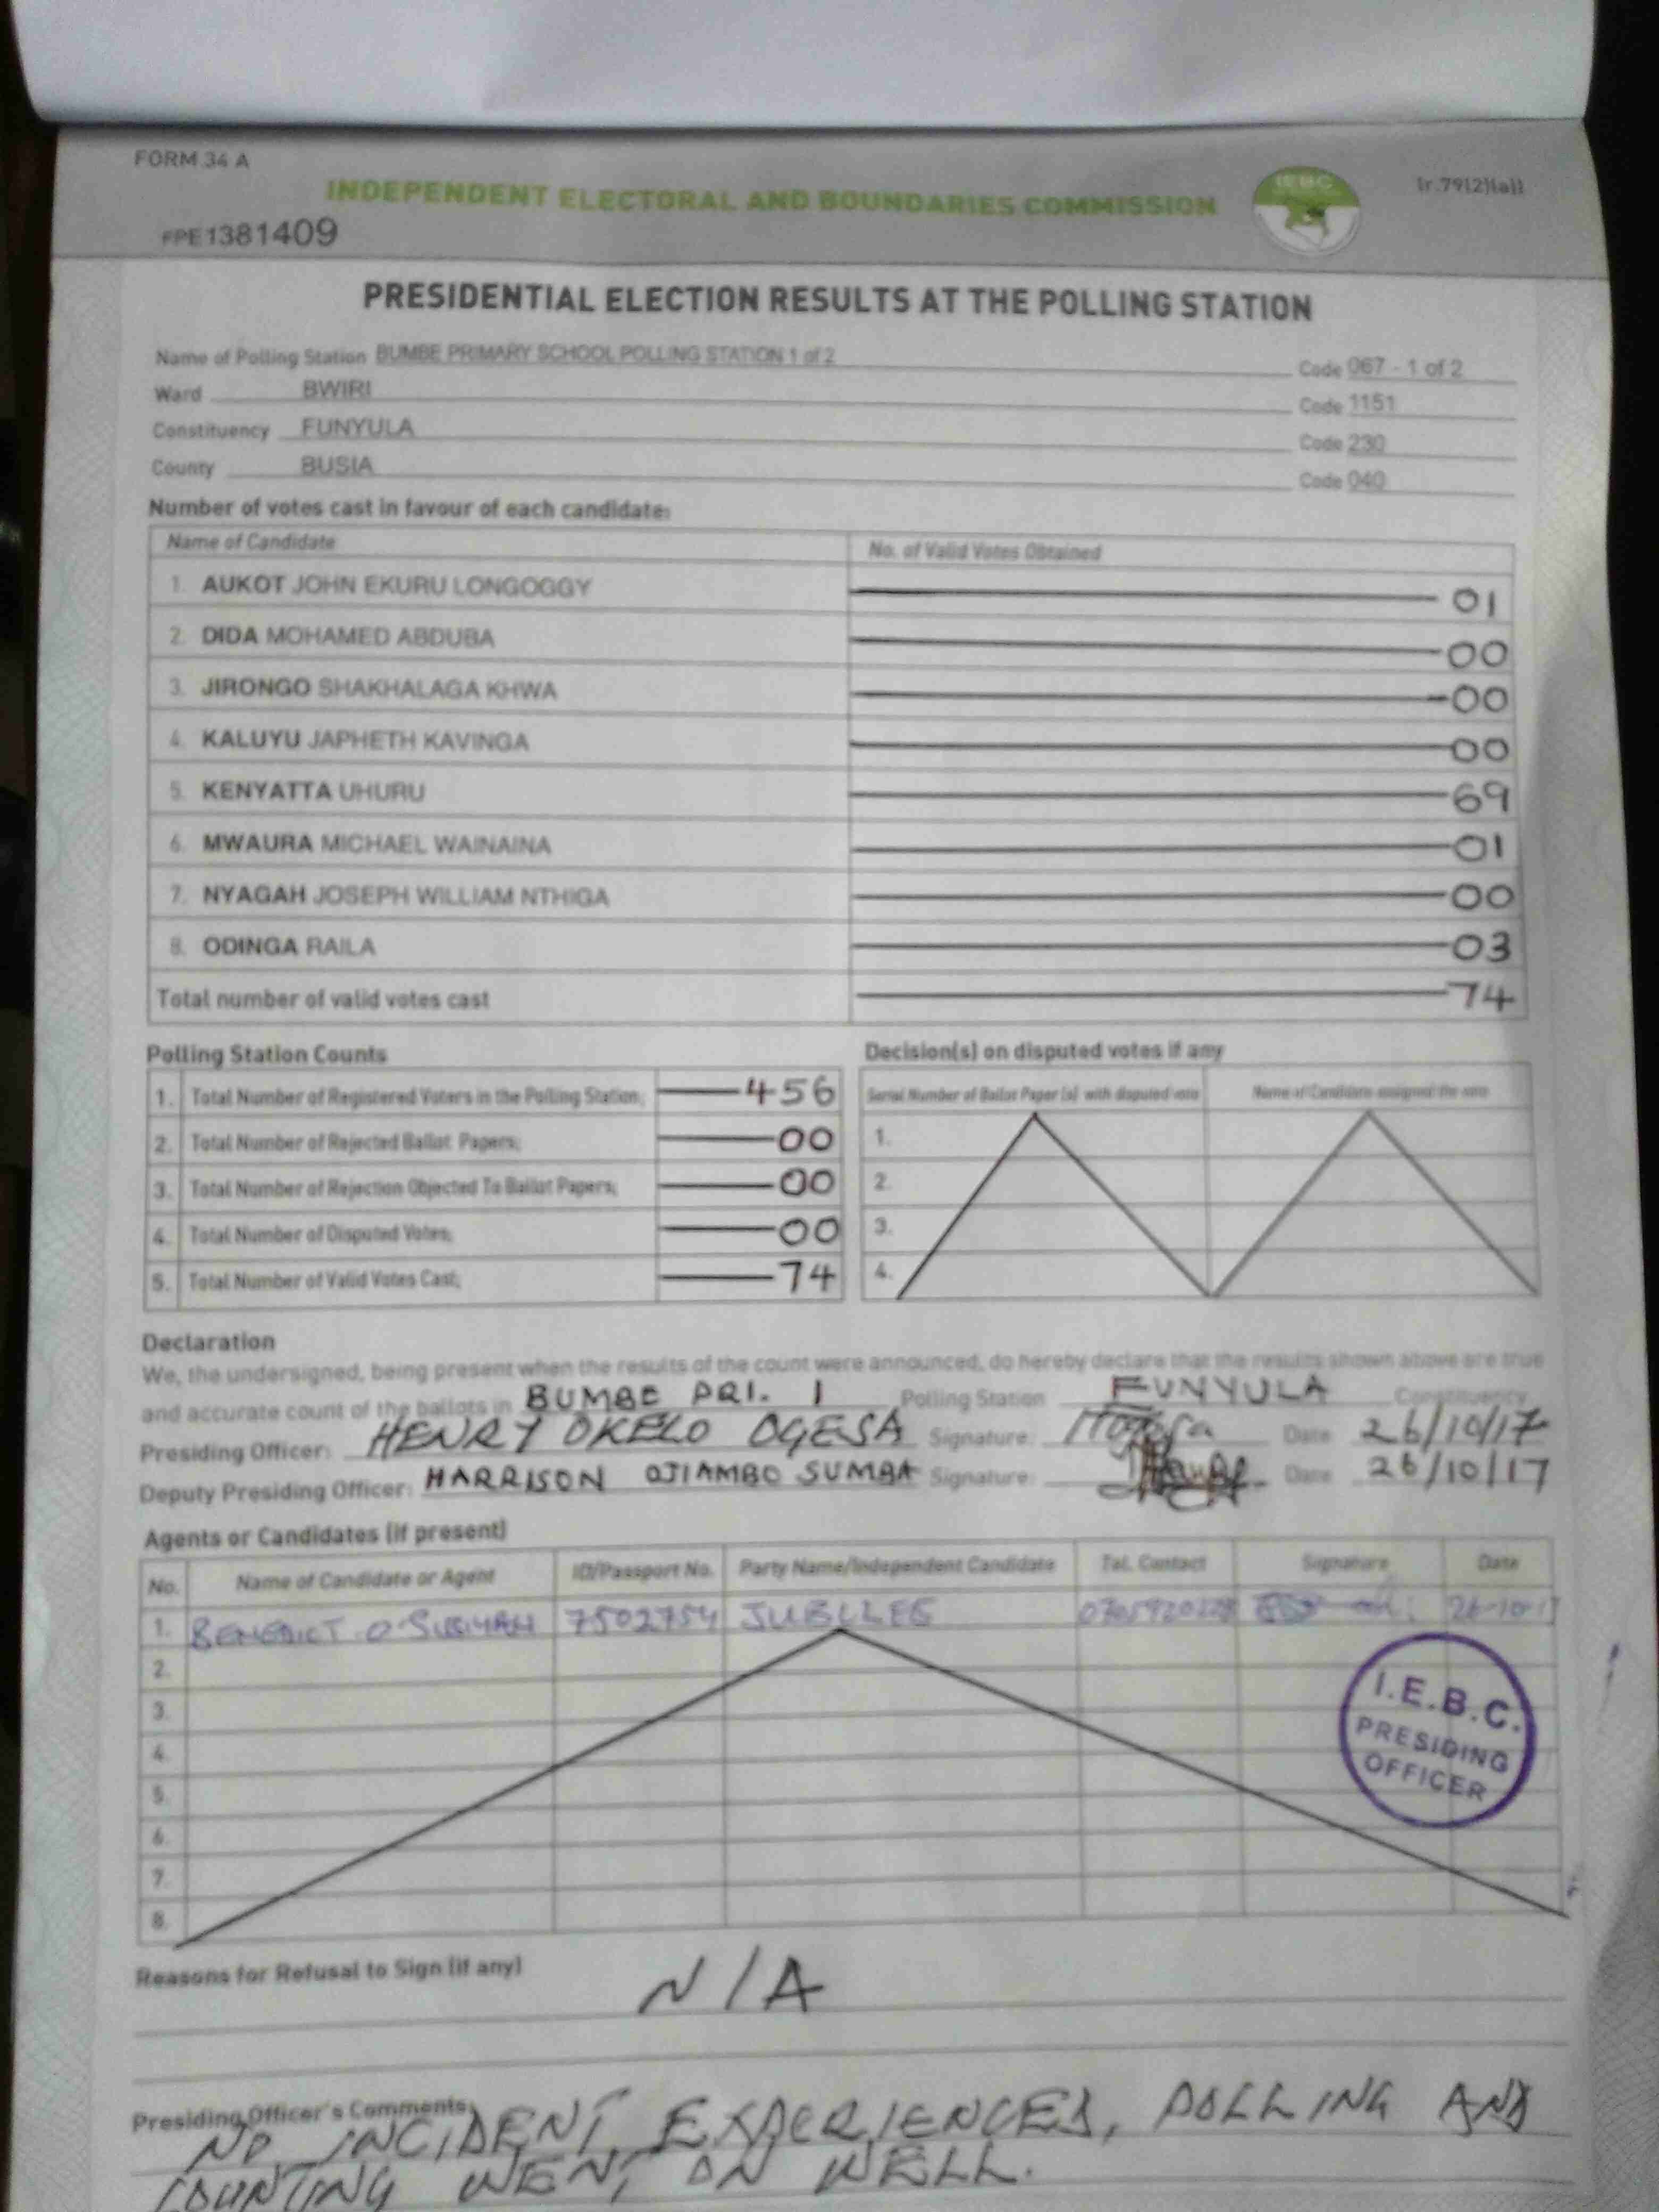 FORM 34 A
(r.79(2)(a))
INDEPENDENT ELECTORAL AND BOUNDARIES COMMISSION
IEBC
FPE1381409
PRESIDENTIAL ELECTION RESULTS AT THE POLLING STATION
Name of Polling Station BUMBE PRIMARY SCHOOL POLLING STATION 1 of 2 Code 067 - 1 of 2
Ward BWIRI Code 1151
Constituency FUNYULA Code 230
County BUSIA Code 040
Number of votes cast in favour of each candidate:
Name of Candidate No. of Valid Votes Obtained
1. AUKOT JOHN EKURU LONGOGGY 01
2. DIDA MOHAMED ABDUBA 00
3. JIRONGO SHAKHALAGA KHWA 00
4. KALUYU JAPHETH KAVINGA 00
5. KENYATTA UHURU 69
6. MWAURA MICHAEL WAINAINA 01
7. NYAGAH JOSEPH WILLIAM NTHIGA 00
8. ODINGA RAILA 03
Total number of valid votes cast 74
Polling Station Counts
1. Total Number of Registered Voters in the Polling Station; 456
2. Total Number of Rejected Ballot Papers; 00
3. Total Number of Rejection Objected To Ballot Papers; 00
4. Total Number of Disputed Votes; 00
5. Total Number of Valid Votes Cast; 74
Decision(s) on disputed votes if any
Serial Number of Ballot Paper (s) with disputed vote Name of Candidate assigned the vote
1.
2.
3.
4.
Declaration
We, the undersigned, being present when the results of the count were announced, do hereby declare that the results shown above are true
and accurate count of the ballots in BUMBE PRI. 1 Polling Station FUNYULA Constituency
Presiding Officer: HENRY OKELO OGESA Signature: Date 26/10/17
Deputy Presiding Officer: HARRISON OJIAMBO SUMBA Signature: Date 26/10/17
Agents or Candidates (if present)
No. Name of Candidate or Agent ID/Passport No. Party Name/Independent Candidate Tel. Contact Signature Date
1. BENEDICT O 7502754 JUBILEE
2.
3.
4.
5.
6.
7.
8.
I.E.B.C.
PRESIDING
OFFICER
Reasons for Refusal to Sign (if any)
N/A
Presiding Officer's Comments:
NO INCIDENT EXPERIENCED, POLLING AND
COUNTING WENT ON WELL.